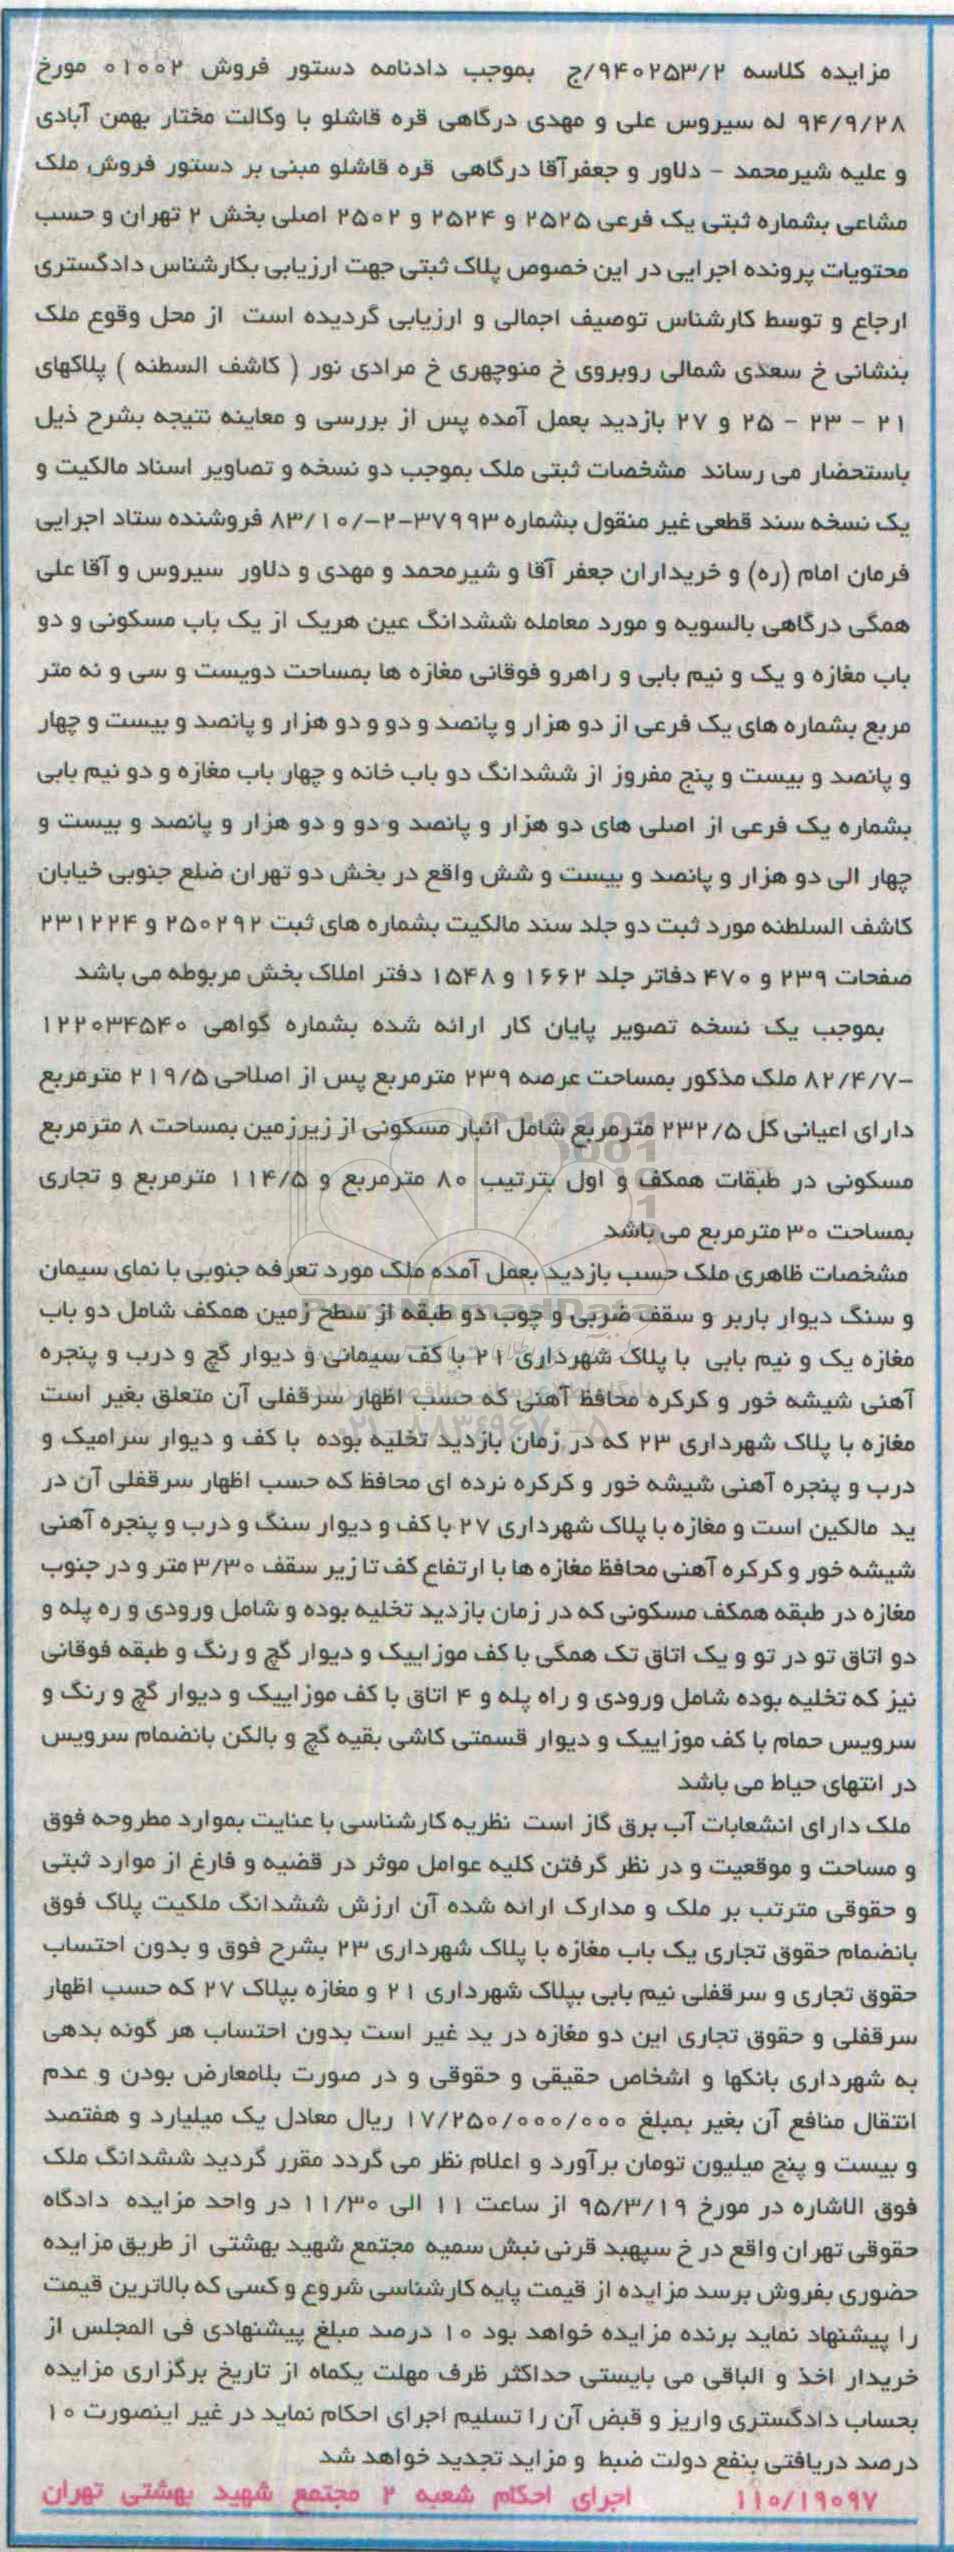 مزایده کلاسه ۹۴۰۲۵۳/۲/ج بموجب دادنامه دستور فروش ۰۱۰۰۲ مورخ
۹۴/۹/۲۸ له سیروس علی و مهدی درگاهی قره قاشلو با وکالت مختار بهمن آبادی
و علیه شیرمحمد - دلاور و جعفرآقا درگاهی قره قاشلو مبنی بر دستور فروش ملک
مشاعی بشماره ثبتی یک فرعی ۲۵۲۵ و ۲۵۲۴ و ۲۵۰۲ اصلی بخش ۲ تهران و حسب
محتویات پرونده اجرایی در این خصوص پلاک ثبتی جهت ارزیابی بکارشناس دادگستری
ارجاع و توسط کارشناس توصیف اجمالی و ارزیابی گردیده است از محل وقوع ملک
بنشانی خ سعدی شمالی روبروی خ منوچهری خ مرادی نور ( کاشف السطنه ) پلاکهای
۲۱ - ۲۳ - ۲۵ و ۲۷ بازدید بعمل آمده پس از بررسی و معاینه نتیجه بشرح ذیل
باستحضار می رساند مشخصات ثبتی ملک بموجب دو نسخه و تصاویر اسناد مالکیت و
یک نسخه سند قطعی غیر منقول بشماره ۳۷۹۹۳-۲-/۸۳/۱۰ فروشنده ستاد اجرایی
فرمان امام (ره) و خریداران جعفر آقا و شیرمحمد و مهدی و دلاور سیروس و آقا علی
همگی درگاهی بالسویه و مورد معامله ششدانگ عین هریک از یک باب مسکونی و دو
باب مغازه و یک و نیم بابی و راهرو فوقانی مغازه ها بمساحت دویست و سی و نه متر
مربع بشماره های یک فرعی از دو هزار و پانصد و دو و دو هزار و پانصد و بیست و چهار
و پانصد و بیست و پنج مفروز از ششدانگ دو باب خانه و چهار باب مغازه و دو نیم بابی
بشماره یک فرعی از اصلی های دو هزار و پانصد و دو و دو هزار و پانصد و بیست و
چهار الی دو هزار و پانصد و بیست و شش واقع در بخش دو تهران ضلع جنوبی خیابان
کاشف السلطنه مورد ثبت دو جلد سند مالکیت بشماره های ثبت ۲۵۰۲۹۲ و ۲۳۱۲۲۴
صفحات ۲۳۹ و ۴۷۰ دفاتر جلد ۱۶۶۲ و ۱۵۴۸ دفتر املاک بخش مربوطه می باشد
بموجب یک نسخه تصویر پایان کار ارائه شده بشماره گواهی ۱۲۲۰۳۴۵۴۰
-۸۲/۴/۷ ملک مذکور بمساحت عرصه ۲۳۹ مترمربع پس از اصلاحی ۲۱۹/۵ مترمربع
دارای اعیانی کل ۲۳۲/۵ مترمربع شامل انبار مسکونی از زیرزمین بمساحت ۸ مترمربع
مسکونی در طبقات همکف و اول بترتیب ۸۰ مترمربع و ۱۱۴/۵ مترمربع و تجاری
بمساحت ۳۰ مترمربع می باشد
مشخصات ظاهری ملک حسب بازدید بعمل آمده ملک مورد تعرفه جنوبی با نمای سیمان
و سنگ دیوار باربر و سقف ضربی و چوب دو طبقه از سطح زمین همکف شامل دو باب
مغازه یک و نیم بابی با پلاک شهرداری ۲۱ با کف سیمانی و دیوار گچ و درب و پنجره
آهنی شیشه خور و کرکره محافظ آهنی که حسب اظهار سرقفلی آن متعلق بغیر است
مغازه با پلاک شهرداری ۲۳ که در زمان بازدید تخلیه بوده با کف و دیوار سرامیک و
درب و پنجره آهنی شیشه خور و کرکره نرده ای محافظ که حسب اظهار سرقفلی آن در
ید مالکین است و مغازه با پلاک شهرداری ۲۷ با کف و دیوار سنگ و درب و پنجره آهنی
شیشه خور و کرکره آهنی محافظ مغازه ها با ارتفاع کف تا زیر سقف ۳/۳۰ متر و در جنوب
مغازه در طبقه همکف مسکونی که در زمان بازدید تخلیه بوده و شامل ورودی و ره پله و
دو اتاق تو در تو و یک اتاق تک همگی با کف موزاییک و دیوار گچ و رنگ و طبقه فوقانی
نیز که تخلیه بوده شامل ورودی و راه پله و ۴ اتاق با کف موزاییک و دیوار گچ و رنگ و
سرویس حمام با کف موزاییک و دیوار قسمتی کاشی بقیه گچ و بالکن بانضمام سرویس
در انتهای حیاط می باشد
ملک دارای انشعابات آب برق گاز است نظریه کارشناسی با عنایت بموارد مطروحه فوق
و مساحت و موقعیت و در نظر گرفتن کلیه عوامل موثر در قضیه و فارغ از موارد ثبتی
و حقوقی مترتب بر ملک و مدارک ارائه شده آن ارزش ششدانگ ملکیت پلاک فوق
بانضمام حقوق تجاری یک باب مغازه با پلاک شهرداری ۲۳ بشرح فوق و بدون احتساب
حقوق تجاری و سرقفلی نیم بابی بپلاک شهرداری ۲۱ و مغازه بپلاک ۲۷ که حسب اظهار
سرقفلی و حقوق تجاری این دو مغازه در ید غیر است بدون احتساب هر گونه بدهی
به شهرداری بانکها و اشخاص حقیقی و حقوقی و در صورت بلامعارض بودن و عدم
انتقال منافع آن بغیر بمبلغ ۱۷/۲۵۰/۰۰۰/۰۰۰ ریال معادل یک میلیارد و هفتصد
و بیست و پنج میلیون تومان برآورد و اعلام نظر می گردد مقرر گردید ششدانگ ملک
فوق الاشاره در مورخ ۹۵/۳/۱۹ از ساعت ۱۱ الی ۱۱/۳۰ در واحد مزایده دادگاه
حقوقی تهران واقع در خ سپهبد قرنی نبش سمیه مجتمع شهید بهشتی از طریق مزایده
حضوری بفروش برسد مزایده از قیمت پایه کارشناسی شروع و کسی که بالاترین قیمت
را پیشنهاد نماید برنده مزایده خواهد بود ۱۰ درصد مبلغ پیشنهادی فی المجلس از
خریدار اخذ و الباقی می بایستی حداکثر ظرف مهلت یکماه از تاریخ برگزاری مزایده
بحساب دادگستری واریز و قبض آن را تسلیم اجرای احکام نماید در غیر اینصورت ۱۰
درصد دریافتی بنفع دولت ضبط و مزاید تجدید خواهد شد
۱۱۰/۱۹۰۹۷ اجرای احکام شعبه ۲ مجتمع شهید بهشتی تهران